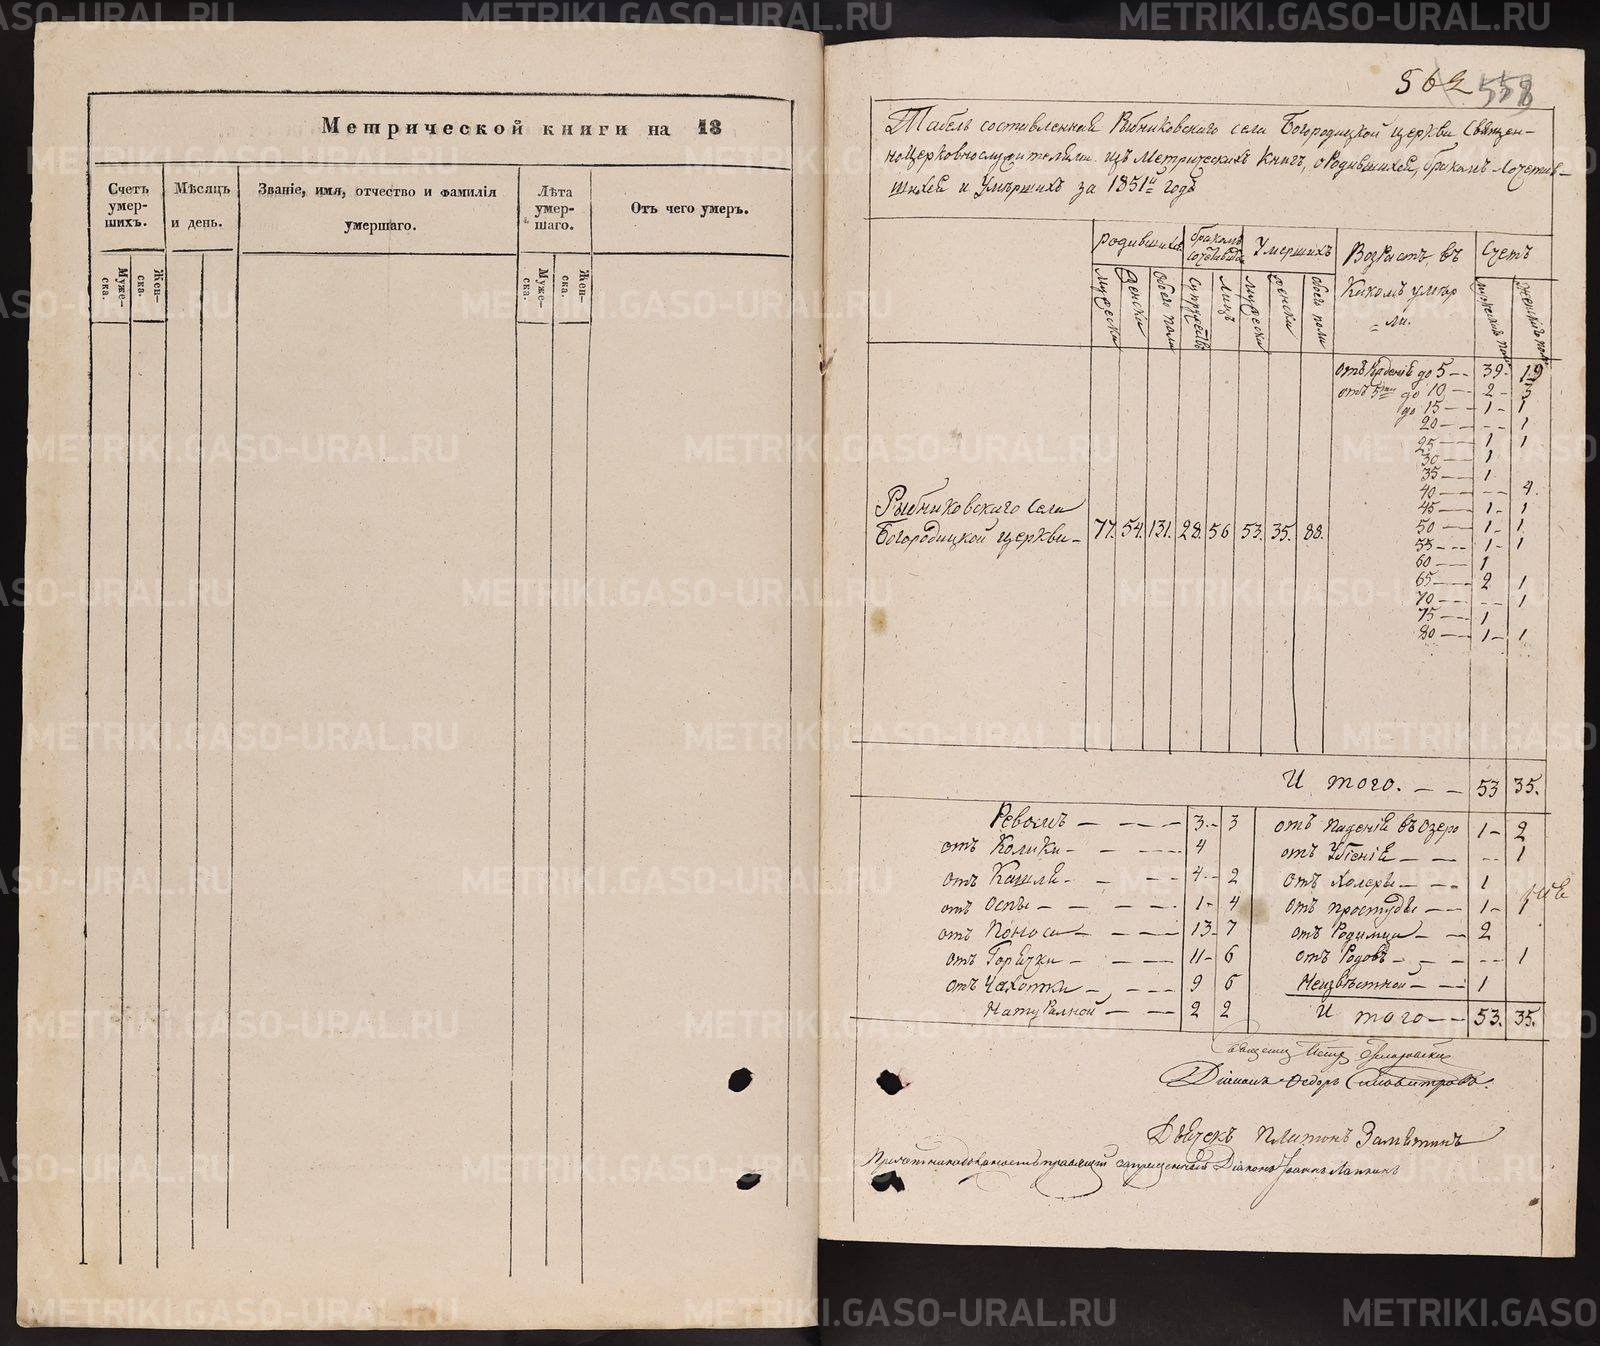 Метрической книги на 18
Счетъ умер- шихъ.
Мѣсяцъ и день.
Званіе, имя, отчество и фамилія умершаго.
Лѣта умер- шаго.
Отъ чего умеръ.
Муже- ска.
Жен- ска.
Муже- ска.
Жен- ска.
562 558
Табель составленный Рыбниковскаго села Богородицкой церкви Священ-
ноцерковнослужителями изъ Метрическихъ книгъ, о Родившихся, бракомъ Сочетав-
шихся и Умершихъ за 1851й годъ
Родившихся
бракомъ
Умершихъ
Возрастъ въ
Счетъ
Мужеска
Женска
Обоего пола
Супружествъ
Лицъ
Мужеска
Женска
Обоего пола
Какомъ умер
= ли.
отъ рожденія до 5 -- 39 19
отъ 5ти до 10 -- 2 - 3
до 15 -- 1 - 1
20 -- -- 1
25 -- 1 1
30 -- 1
35 -- 1
40 -- -- 4
45 -- 1 - 1
50 -- 1 - 1
55 -- 1 - 1
60 -- 1
65 -- 2 1
70 -- -- 1
75 -- 1
80 -- 1 - 1
Рыбниковскаго Села
Богородицкой церкви - 77. 54. 131. 28. 56 53. 35. 88.
И того. - - 53 35.
Ревомъ - - - - 3 - 3
отъ Колики - - - - 4
отъ Кашля - - - 4 - 2
отъ Оспы - - - - 1 - 4
отъ Поноса - - - - 13 - 7
отъ Горячки - - - - 11 - 6
отъ Чахотки - - - - 9 6
Натуральной - - - 2 2
отъ паденія въ озеро 1 - 2
отъ Убіенія - - -- 1
отъ холеры - - - 1
отъ простуды - - 1 - 1
отъ Родимца - - 2
отъ Родовъ - - - -- 1
Неизвѣстной - - 1
И того - - 53. 35.
Священникъ Петръ
Діаконъ Ѳедоръ
Дьячекъ Платонъ Замятинъ
запрещенный Діаконъ Іоаннъ Лапинъ
METRIKI.GASO-URAL.RU